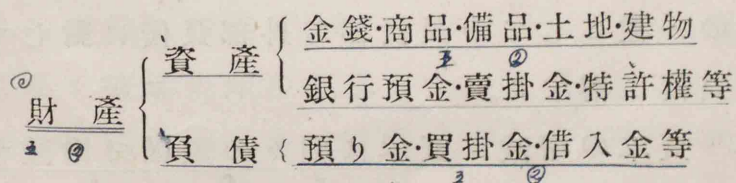 財產
資產
金錢·商品·備品·土地·建物
銀行預金·賣掛金·特許權等
負債
預り金·買掛金·借入金等